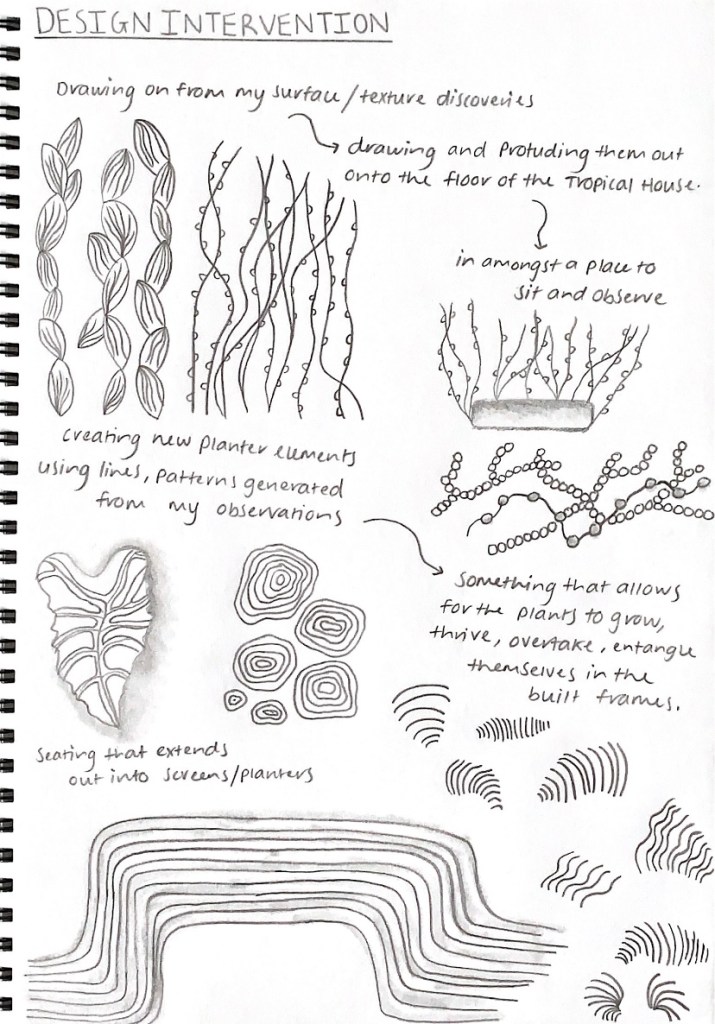 DESIGN INTERVENTION
Drawing on from my surface/texture discoveries
drawing and Protuding them out
onto the floor of the Tropical House.
in amongst a place to
sit and observe
creating new planter elements
using lines, patterns generated
from my observations
Something that allows
for the plants to grow,
thrive, overtake, entangle
themselves in the
built frames.
Seating that extends
out into screens/planters